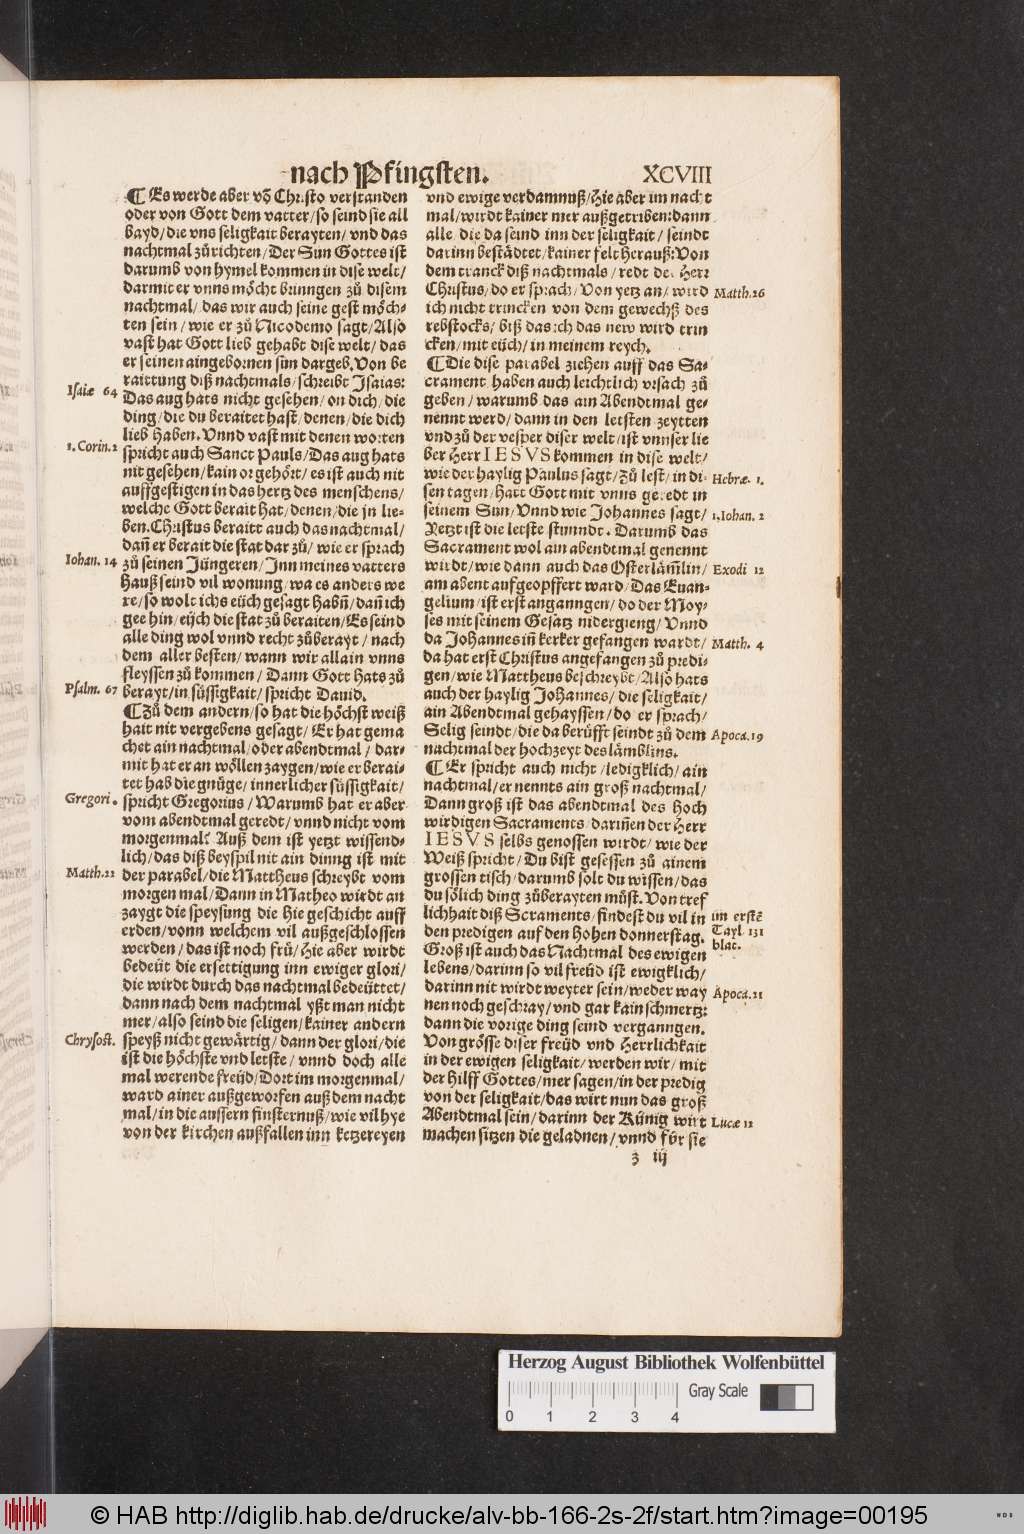 nach Pfingsten. XCVIII
¶ Es werde aber võ Christo verstanden
oder von Gott dem vatter/ so seind sie all
bayd/ die vns seligkait berayten/ vnd das
nachtmal zůrichten/ Der Sun Gottes ist
darumb von hymel kommen in dise welt/
darmit er vnns möcht brinngen zů disem
nachtmal/ das wir auch seine gest möch-
ten sein/ wie er zů Nicodemo sagt/ Also
vast hat Gott lieb gehabt dise welt/ das
er seinen aingebornen sůn dargeb. Von be
raittung diß nachtmals/ schreibt Isaias:
Isaiæ 64
Das aug hats nicht gesehen/ on dich/ die
ding/ die du beraitet hast/ denen/ die dich
lieb haben. Vnnd vast mit denen worten
1. Corin. 2
spricht auch Sanct Pauls/ Das aug hats
nit gesehen/ kain or gehört/ es ist auch nit
auffgestigen in das hertz des menschens/
welche Gott berait hat/ denen/ die jn lie-
ben. Christus beraitt auch das nachtmal/
dañ er berait die stat dar zů/ wie er sprach
Iohan. 14
zů seinen Jüngeren/ Jnn meines vatters
Hauß seind vil wonung/ wa es anders we
re/ so wolt ichs eüch gesagt habñ/ dañ ich
gee hin/ eüch die stat zů beraiten/ Es seind
alle ding wol vnnd recht zůberayt/ nach
dem aller besten/ wann wir allain vnns
fleyssen zů kommen/ Dann Gott hats zů
Psalm. 67
berayt/ in süssigkait/ spricht Dauid.
¶ Zů dem andern/ so hat die höchst weiß
hait nit vergebens gesagt/ Er hat gema
chet ain nachtmal/ oder abendtmal/ dar-
mit hat er an wöllen zaygen/ wie er berai-
tet hab die gnüge/ innerlicher süssigkait/
Gregori.
spricht Gregorius/ Warumb hat er aber
vom abendtmal geredt/ vnnd nicht vom
morgenmal? Auß dem ist yetzt wissend-
lich/ das diß beyspil nit ain dinng ist mit
Matth. 22
der parabel/ die Mattheus schreybt vom
morgen mal/ Dann in Matheo wirdt an
zaygt die speysung die hie geschicht auff
erden/ vonn welchem vil außgeschlossen
werden/ das ist noch frů/ hie aber wirdt
bedeüt die ersettigung inn ewiger glori/
die wirdt durch das nachtmal bedeüttet/
dann nach dem nachtmal yßt man nicht
mer/ also seind die seligen/ kainer andern
Chrysost.
speyß nicht gewärtig/ dann der glori/ die
ist die höchste vnd letste/ vnnd doch alle
mal werende freüd/ Dort im morgenmal/
ward ainer außgeworfen auß dem nacht
mal/ in die aussern finsternuß/ wie vil hye
von der kirchen außfallen inn ketzereyen
vnd ewige verdamnuß/ hie aber im nacht
mal/ wirdt kainer mer außgetriben: dann
alle die da seind inn der seligkait/ seindt
darinn bestädtet/ kainer felt herauß: Von
dem tranck diß nachtmals/ redt der Herr
Christus/ do er sprach/ Von yetz an/ wird
Matth. 26
ich nicht trincken von dem gewechß des
rebstocks/ biß das ich das new wird trin
cken/ mit eüch/ in meinem reych.
¶ Die dise parabel ziehen auff das Sa-
crament haben auch leichtlich vrsach zů
geben/ warumb das ain Abendtmal ge-
nennt werd/ dann in den letsten zeytten
vnd zů der vesper diser welt/ ist vnnser lie
ber Herr IESVS kommen in dise welt/
wie der haylig Paulus sagt/ Zů lest/ in di-
Hebræ. 1.
sen tagen/ hatt Gott mit vnns geredt in
seinem Sun/ Vnnd wie Johannes sagt/
1. Iohan. 2
Yetzt ist die letste stunndt. Darumb das
Sacrament wol ain abendtmal genennt
wirdt/ wie dann auch das Osterlämlin/
Exodi 12
am abent aufgeopffert ward/ Das Euan-
gelium/ ist erst anganngen/ do der Moy-
ses mit seinem Gesatz nidergieng/ Vnnd
da Johannes iñ kerker gefangen wardt/
Matth. 4
da hat erst Christus angefangen zů predi-
gen/ wie Mattheus beschreybt/ Also hats
auch der haylig Johannes/ die seligkait/
ain Abendtmal gehayssen/ do er sprach/
Selig seindt/ die da berůfft seindt zů dem
Apoca. 19
nachtmal der hochzeyt des lämblins.
¶ Er spricht auch nicht/ ledigklich/ ain
nachtmal/ er nennts ain groß nachtmal/
Dann groß ist das abendtmal des Hoch
wirdigen Sacraments/ dariñen der Herr
IESVS selbs genossen wirdt/ wie der
Weiß spricht/ Du bist gesessen zů ainem
grossen tisch/ darumb solt du wissen/ das
du sölich ding zůberayten můst. Von tref
lichhait diß Scraments/ findest du vil in
im erstẽ
Tayl 131
blat.
den predigen auf den hohen donnerstag.
Groß ist auch das Nachtmal des ewigen
lebens/ darinn so vil freüd ist ewigklich/
darinn nit wirdt weyter sein/ weder way
Apoca. 21
nen noch geschray/ vnd gar kain schmertz:
dann die vorige ding seind verganngen.
Von grösse diser freüd vnd herrlichkait
in der ewigen seligkait/ werden wir/ mit
der hilff Gottes/ mer sagen/ in der predig
von der seligkait/ das wirt nun das groß
Abendtmal sein/ darinn der Künig wirt
Lucæ 12
machen sitzen die geladnen/ vnnd für sie
z iij
Herzog August Bibliothek Wolfenbüttel
Gray Scale
0 1 2 3 4
© HAB http://diglib.hab.de/drucke/alv-bb-166-2s-2f/start.htm?image=00195